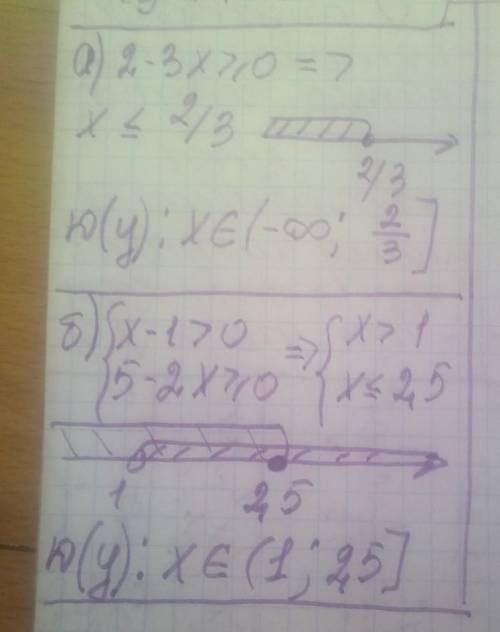 а) 2-3x⩾0 =>
x ≤ 2/3
2/3
D(y): x∈(-∞; 2/3]
б) {x-1>0 => {x>1
{5-2x⩾0 {x≤2,5
1 2,5
D(y): x∈(1; 2,5]